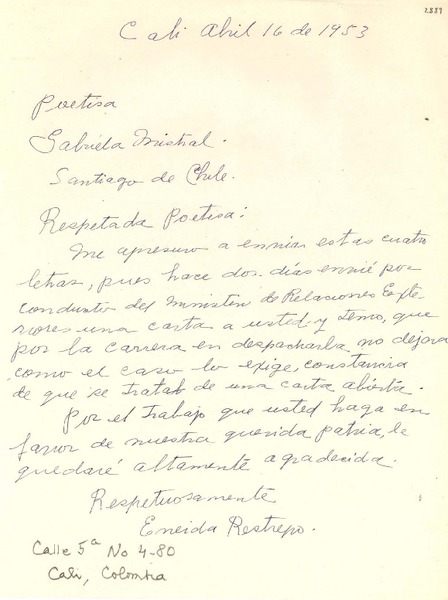 2889
Cali Abril 16 de 1953
Poetisa
Gabriela Mistral.
Santiago de Chile.
Respetada Poetisa:
Me apresuro a enviar estas cuatro
letras, pues hace dos días envié por
conducto del Ministerio de Relaciones Exte-
riores una carta a usted y temo, que
por la carrera en despacharla no dejara
como el caso lo exige, constancia
de que se trataba de una carta abierta.
Por el trabajo que usted haga en
favor de nuestra querida patria, le
quedaré altamente agradecida.
Respetuosamente
Eneida Restrepo.
Calle 5ª No 4-80
Cali, Colombia